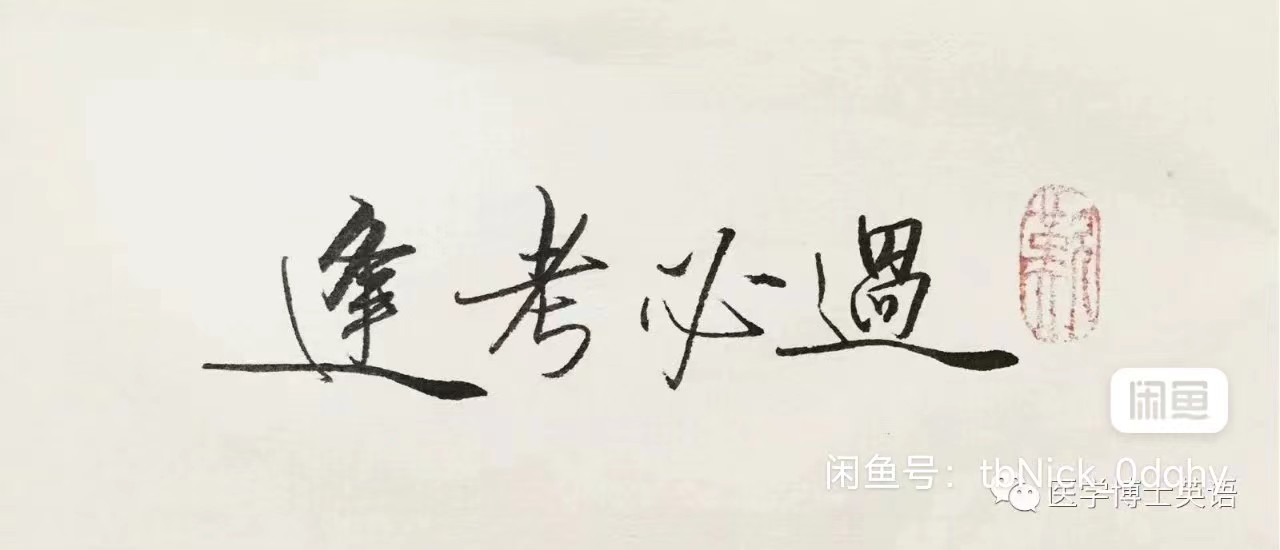 逢考必過
闲鱼
闲鱼号：tbNick_0dqhy
医学博士英语